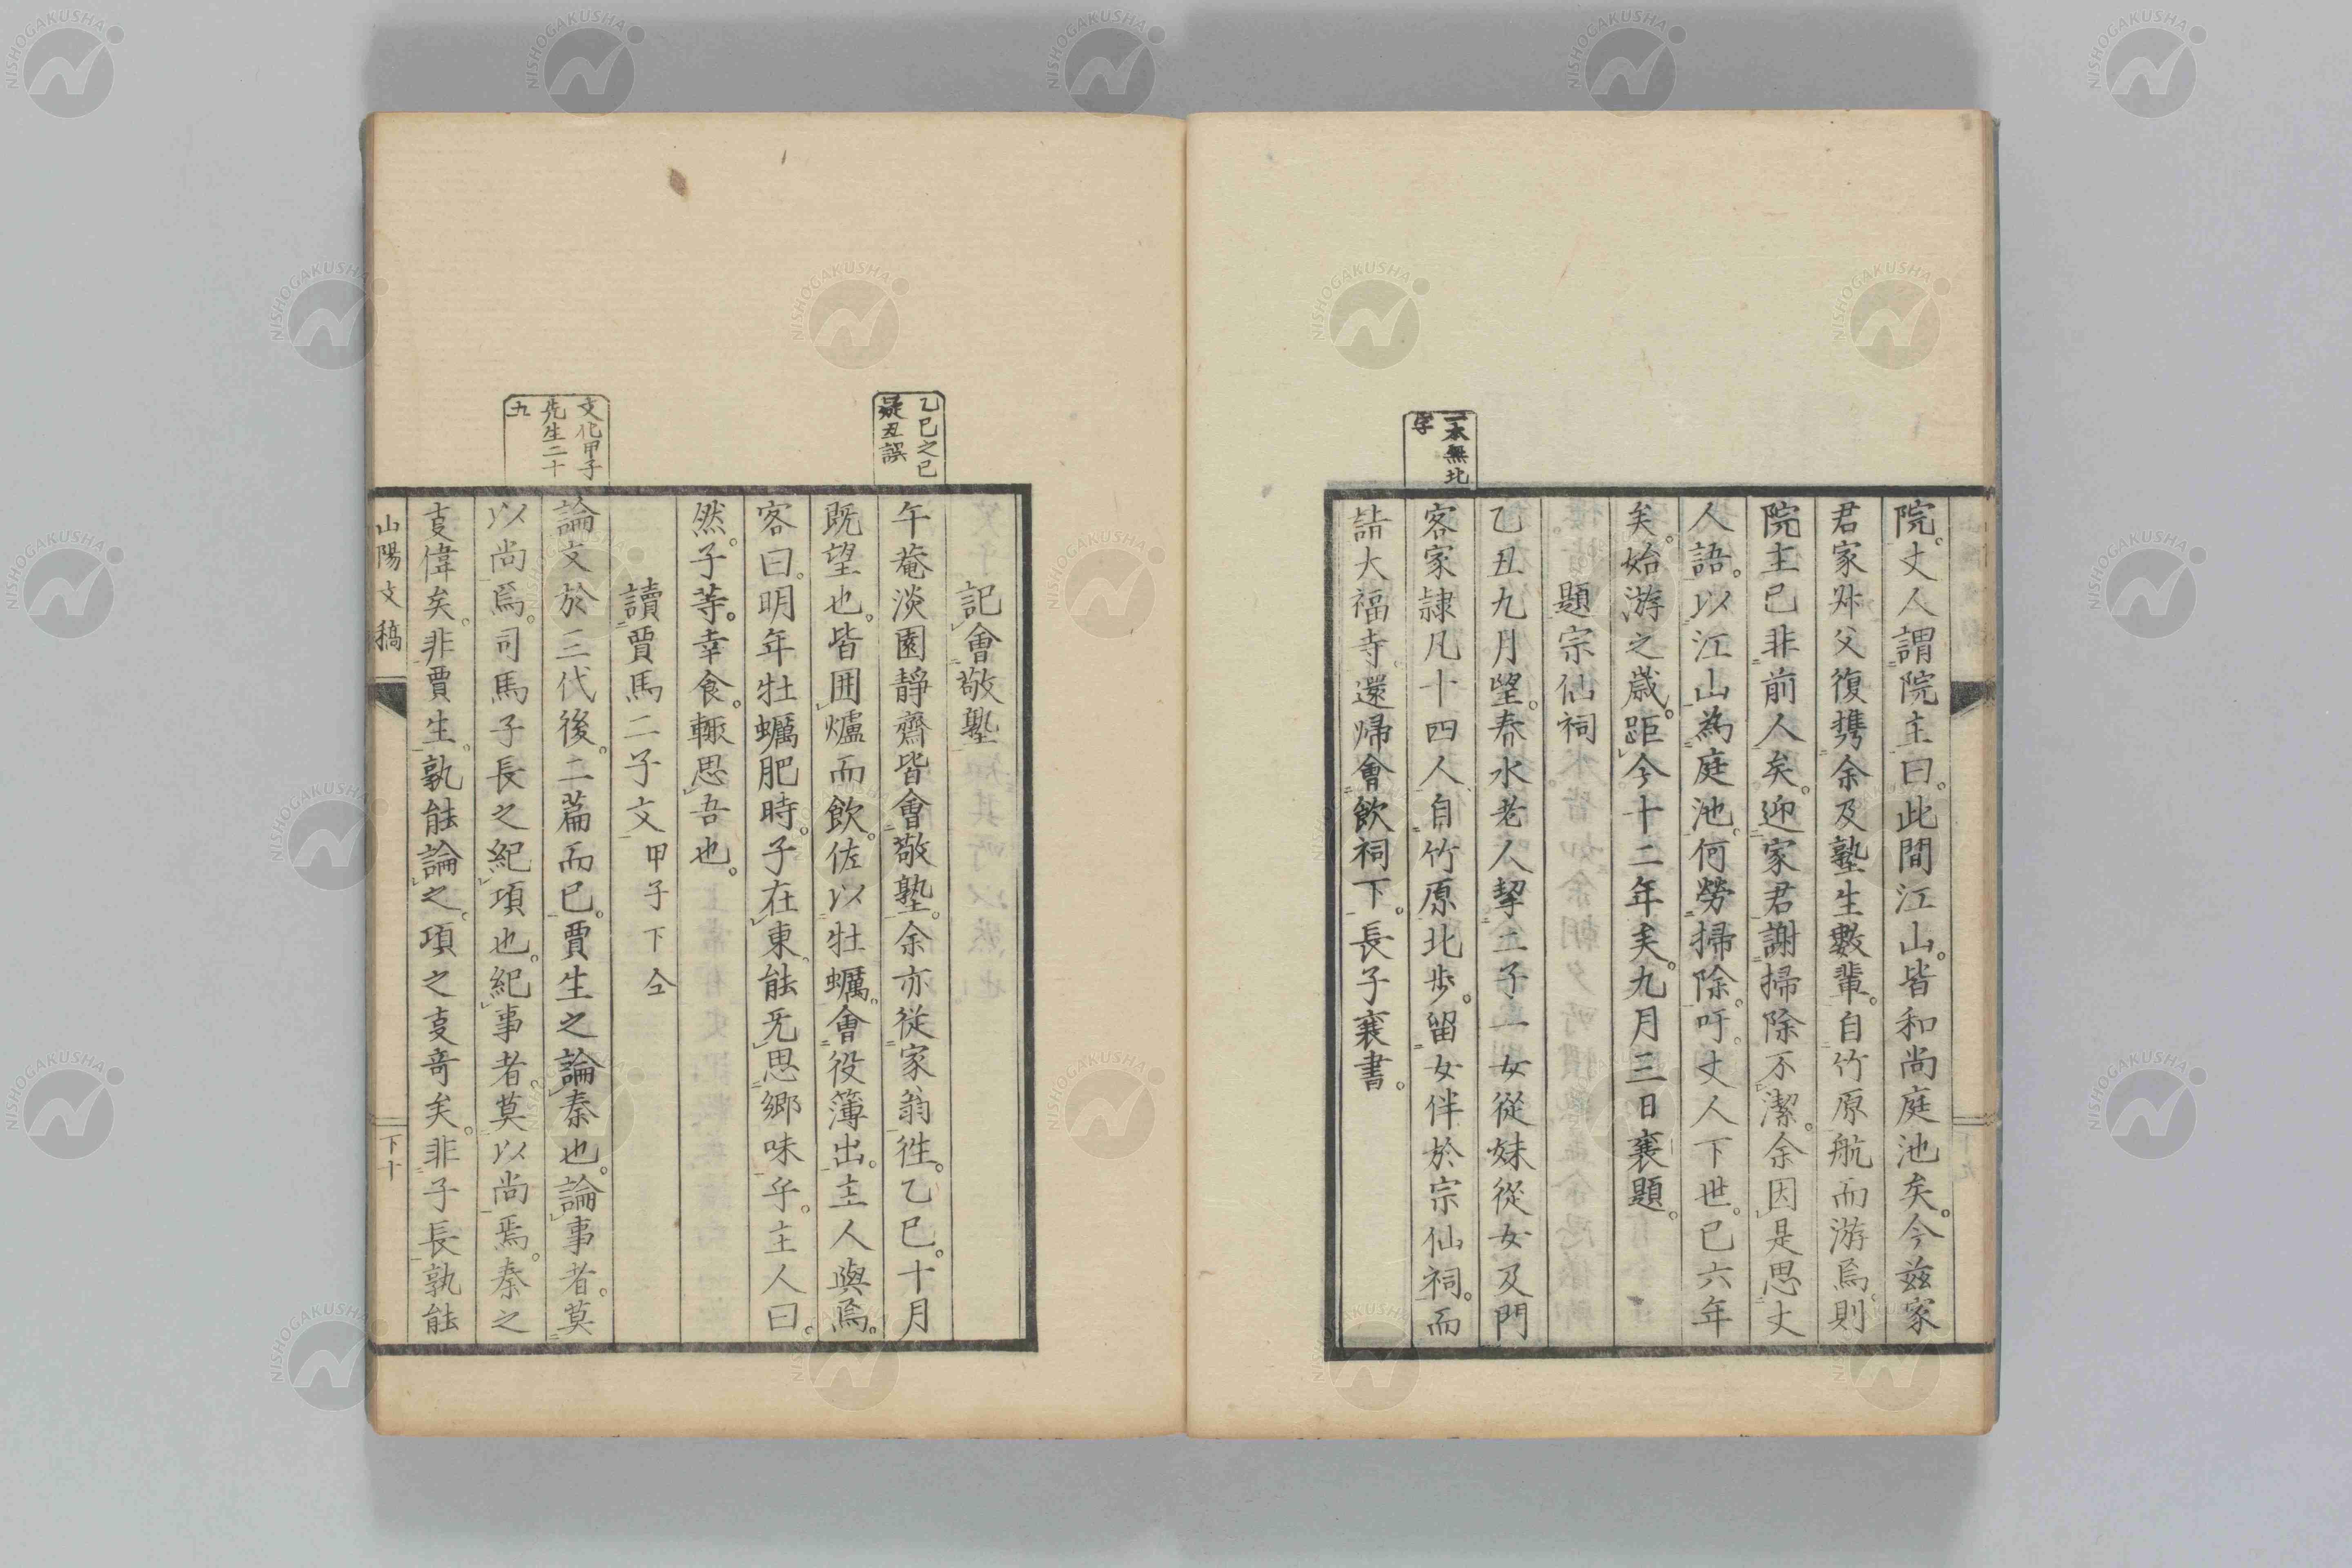 院。丈人謂院主曰。此間江山。皆和尚庭池矣。今茲家
君家叔父復携余及塾生數輩。自竹原航而游焉。則
院主已非前人矣。迎家君謝掃除不潔。余因是思丈
人語。以江山為庭池。何勞掃除。吁。丈人下世。已六年
矣。始游之歲。距今十二年矣。九月三日襄題。
題宗仙祠
乙丑九月望。春水老人挈二子一女從妹從女及門
一本無北
字
客家隷凡十四人、自竹原北步。留女伴於宗仙祠。而
詣大福寺。還帰會飲祠下。長子襄書。
記會敬塾
乙巳之巳
疑丑誤
午菴淡園靜齋皆會敬塾。余亦從家翁徃。乙巳。十月
既望也。皆囲爐而飲。佐以牡蠣。會役簿出。主人與焉。
客曰。明年牡蠣肥時。子在東。能旡思鄉味乎。主人曰。
然。子等。幸食。輙思吾也。
讀賈馬二子文 甲子下仝
文化甲子
先生二十
九
論文於三代後。二篇而已。賈生之論秦也。論事者。莫
以尚焉。司馬子長之紀項也。紀事者。莫以尚焉。秦之
叓偉矣。非賈生。孰能論之。項之叓竒矣。非子長孰能
山陽文稿
下十
NISHOGAKUSHA